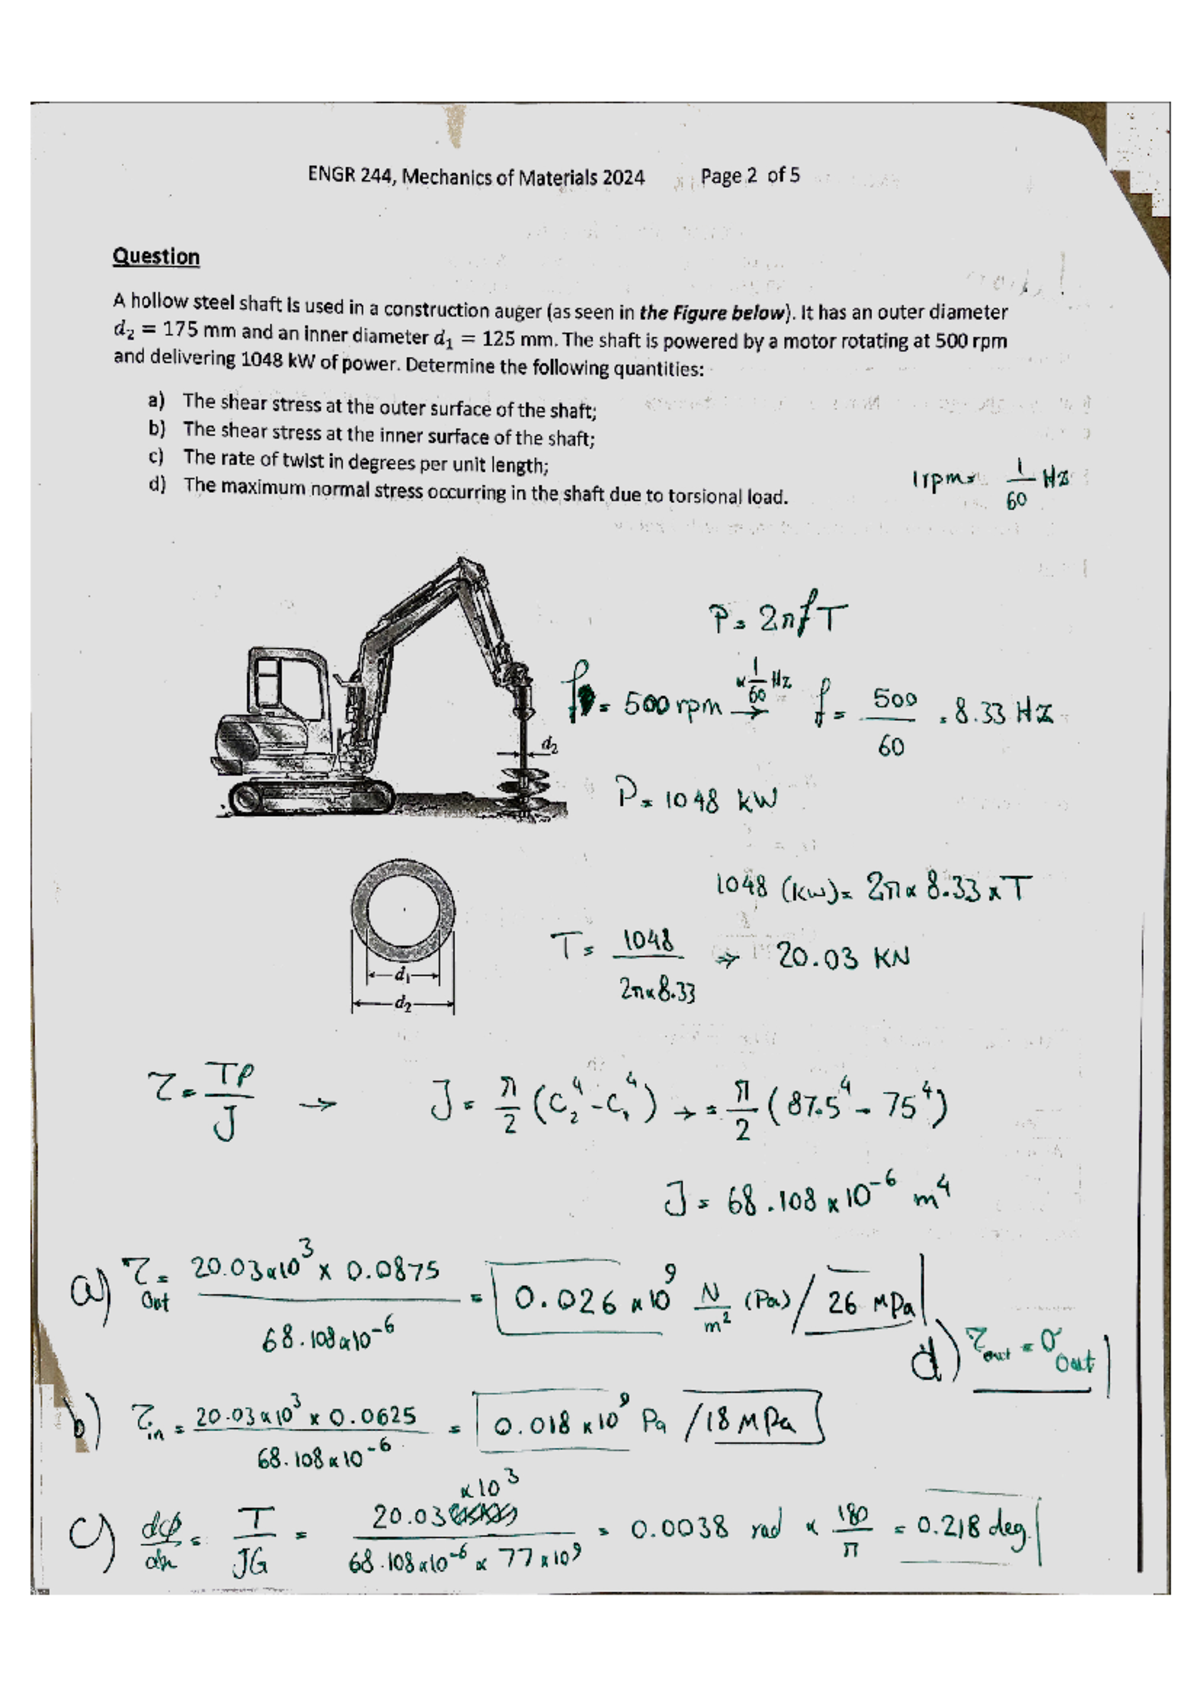 ENGR 244, Mechanics of Materials 2024 Page 2 of 5
Question
A hollow steel shaft is used in a construction auger (as seen in the Figure below). It has an outer diameter
d₂ = 175 mm and an inner diameter d₁ = 125 mm. The shaft is powered by a motor rotating at 500 rpm
and delivering 1048 kW of power. Determine the following quantities:
a) The shear stress at the outer surface of the shaft;
b) The shear stress at the inner surface of the shaft;
c) The rate of twist in degrees per unit length;
d) The maximum normal stress occurring in the shaft due to torsional load.
1rpm = 1/60 Hz
P = 2πfT
f = 500 rpm ×1/60 Hz → f = 500/60 = 8.33 Hz
d₂
P = 1048 kW
1048 (kW) = 2π × 8.33 × T
T = 1048/2π×8.33 ⇒ 20.03 KN
d₁
d₂
τ = Tρ/J → J = π/2 (C₂⁴ - C₁⁴) → = π/2 (87.5⁴ - 75⁴)
J = 68.108 × 10⁻⁶ m⁴
a) τout = 20.03×10³ × 0.0875 / 68.108×10⁻⁶ = 0.026 × 10⁹ N/m² (Pa) / 26 MPa
d) τout = σout
b) τin = 20.03×10³ × 0.0625 / 68.108×10⁻⁶ = 0.018 × 10⁹ Pa / 18 MPa
c) dφ/dx = T/JG = 20.03 ×10³ / 68.108×10⁻⁶ × 77×10⁹ = 0.0038 rad × 180/π = 0.218 deg.